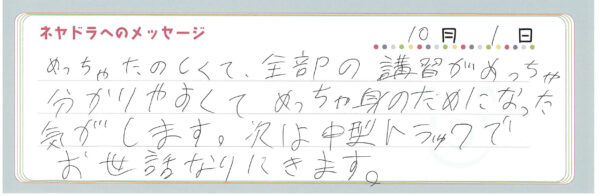 ネヤドラへのメッセージ
10月 1日
めっちゃたのしくて、全部の講習がめっちゃ
分かりやすくてめっちゃ身のためになった
気がします。次は中型トラックで
お世話なりにきます。